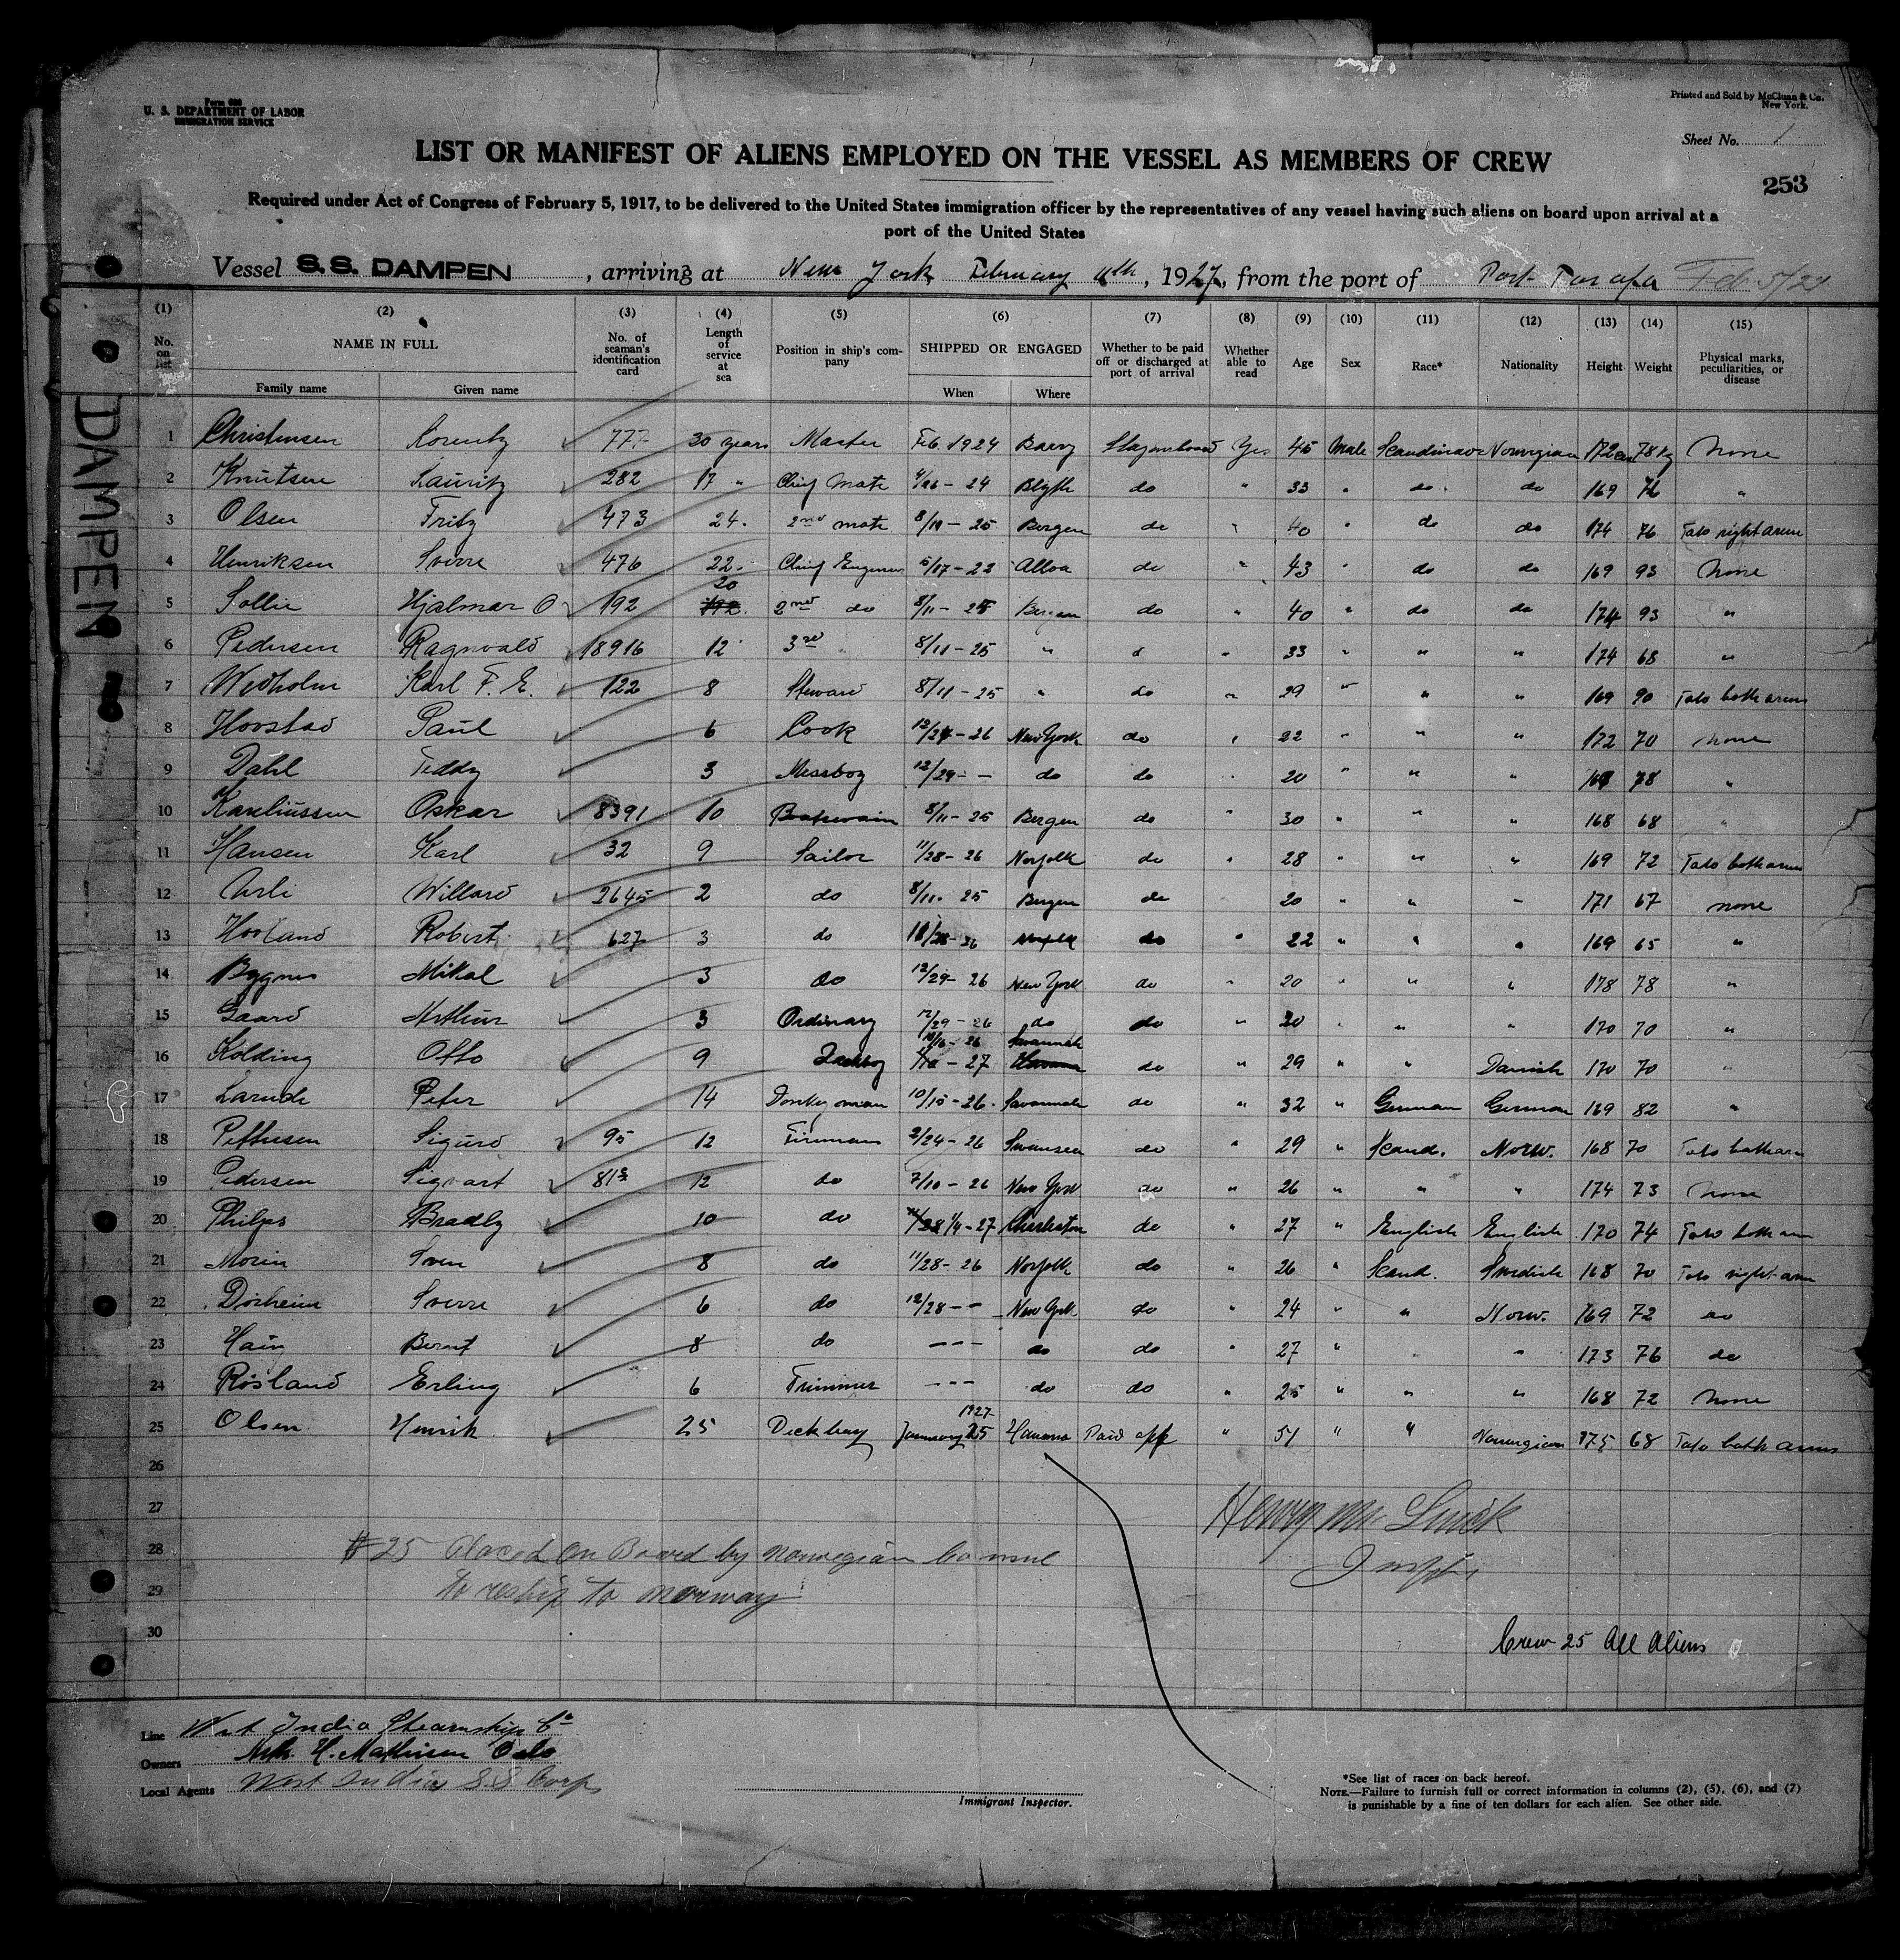 Form 680
U. S. DEPARTMENT OF LABOR
IMMIGRATION SERVICE
Printed and Sold by McClunn & Co.
New York.
Sheet No. 1
LIST OR MANIFEST OF ALIENS EMPLOYED ON THE VESSEL AS MEMBERS OF CREW
253
Required under Act of Congress of February 5, 1917, to be delivered to the United States immigration officer by the representatives of any vessel having such aliens on board upon arrival at a
port of the United States
Vessel S.S. DAMPEN, arriving at New York February 11th, 1927, from the port of Port Tarafa Feb 5/27
DAMPEN
(1) (2) (3) (4) (5) (6) (7) (8) (9) (10) (11) (12) (13) (14) (15)
No. on list NAME IN FULL Family name Given name No. of seaman's identification card Length of service at sea Position in ship's company SHIPPED OR ENGAGED When Where Whether to be paid off or discharged at port of arrival Whether able to read Age Sex Race* Nationality Height Weight Physical marks, peculiarities, or disease
1 Christensen Lorentz 777 30 years Master Feb. 1924 Yes 45 Male Scandinav Norwegian 172 cm 78 kg None
2 Knutsen Lauritz 282 17 " Chief Mate 24 Blyth do " 33 " do do 169 76 "
3 Olsen Fritz 473 24 2nd mate 8/19 - 25 Bergen do " 40 " do do 174 76 Tato right arm
4 Henriksen Sverre 476 22 Chief Engineer 5/17 - 22 Alloa do " 43 " do do 169 93 None
5 Sollie Hjalmar O 192 20 2nd do 8/11 - 25 Bergen do " 40 " do do 174 93 "
6 Pedersen Ragnvald 18916 12 3rd 8/11 - 25 " d " 33 " " " 174 68 "
7 Wedholm Karl F. E. 122 8 Steward 8/11 - 25 " do " 29 " " " 169 90 Tato both arms
8 Hovstad Paul 6 Cook 12/29 - 26 New York do " 22 " " " 172 70 none
9 Dahl Teddy 3 Messboy 12/29 - - do do " 20 " " " 169 78 "
10 Kareliussen Oskar 8391 10 Boatswain 8/11 - 25 Bergen do " 30 " " " 168 68 "
11 Hansen Karl 32 9 Sailor 11/28 - 26 Norfolk do " 28 " " " 169 72 Tato both arms
12 Arli Willard 2645 2 do 8/11 - 25 Bergen do 20 " " " 171 67 none
13 Hovland Robert 627 3 do 11/28 - 26 Norfolk do " 22 " " " 169 65 "
14 Bygnes Mikal 3 do 12/29 - 26 New York do " 20 " " " 178 78 "
15 Gaard Arthur 3 Ordinary 12/29 - 26 do do " 20 " " " 170 70 "
16 Kolding Otto 9 26 Savannah - 27 do " 29 " " Danish 170 70 "
17 Larude Peter 14 Donkeyman 10/15 - 26 Savannah do " 32 " German German 169 82 "
18 Pettersen Sigurd 95 12 Fireman 2/24 - 26 Swansea do " 29 " Scand. Norw. 168 70 Tato both arm
19 Pedersen Sigvart 813 12 do 7/10 - 26 New York do " 26 " " " 174 73 None
20 Philps Bradly 10 do 1/4 - 27 Charleston do " 27 " English English 170 74 Tato both arm
21 Morin Sven 8 do 11/28 - 26 Norfolk do " 26 " Scand. Swedish 168 70 Tato right arm
22 Dorheim Sverre 6 do 12/28 - - New York do " 24 " " Norw. 169 72 do
23 Hain Bernt 8 do - - - do do " 27 " " " 173 76 do
24 Rosland Erling 6 Trimmer - - - do do " 25 " " " 168 72 None
25 Olsen Henrik 25 Deckboy January 25 1927 Havana Paid off " 51 " " Norwegian 175 68 Tato both arms
26
27
28
29
30
Henry
#25 Placed on Board by Norwegian Consul
to reship to Norway
Crew 25 All Aliens
Line West India Steamship Co
Owners H. Mathisen Oslo
Local Agents West India S.S Corp
Immigrant Inspector.
*See list of races on back hereof.
NOTE.—Failure to furnish full or correct information in columns (2), (5), (6), and (7)
is punishable by a fine of ten dollars for each alien. See other side.